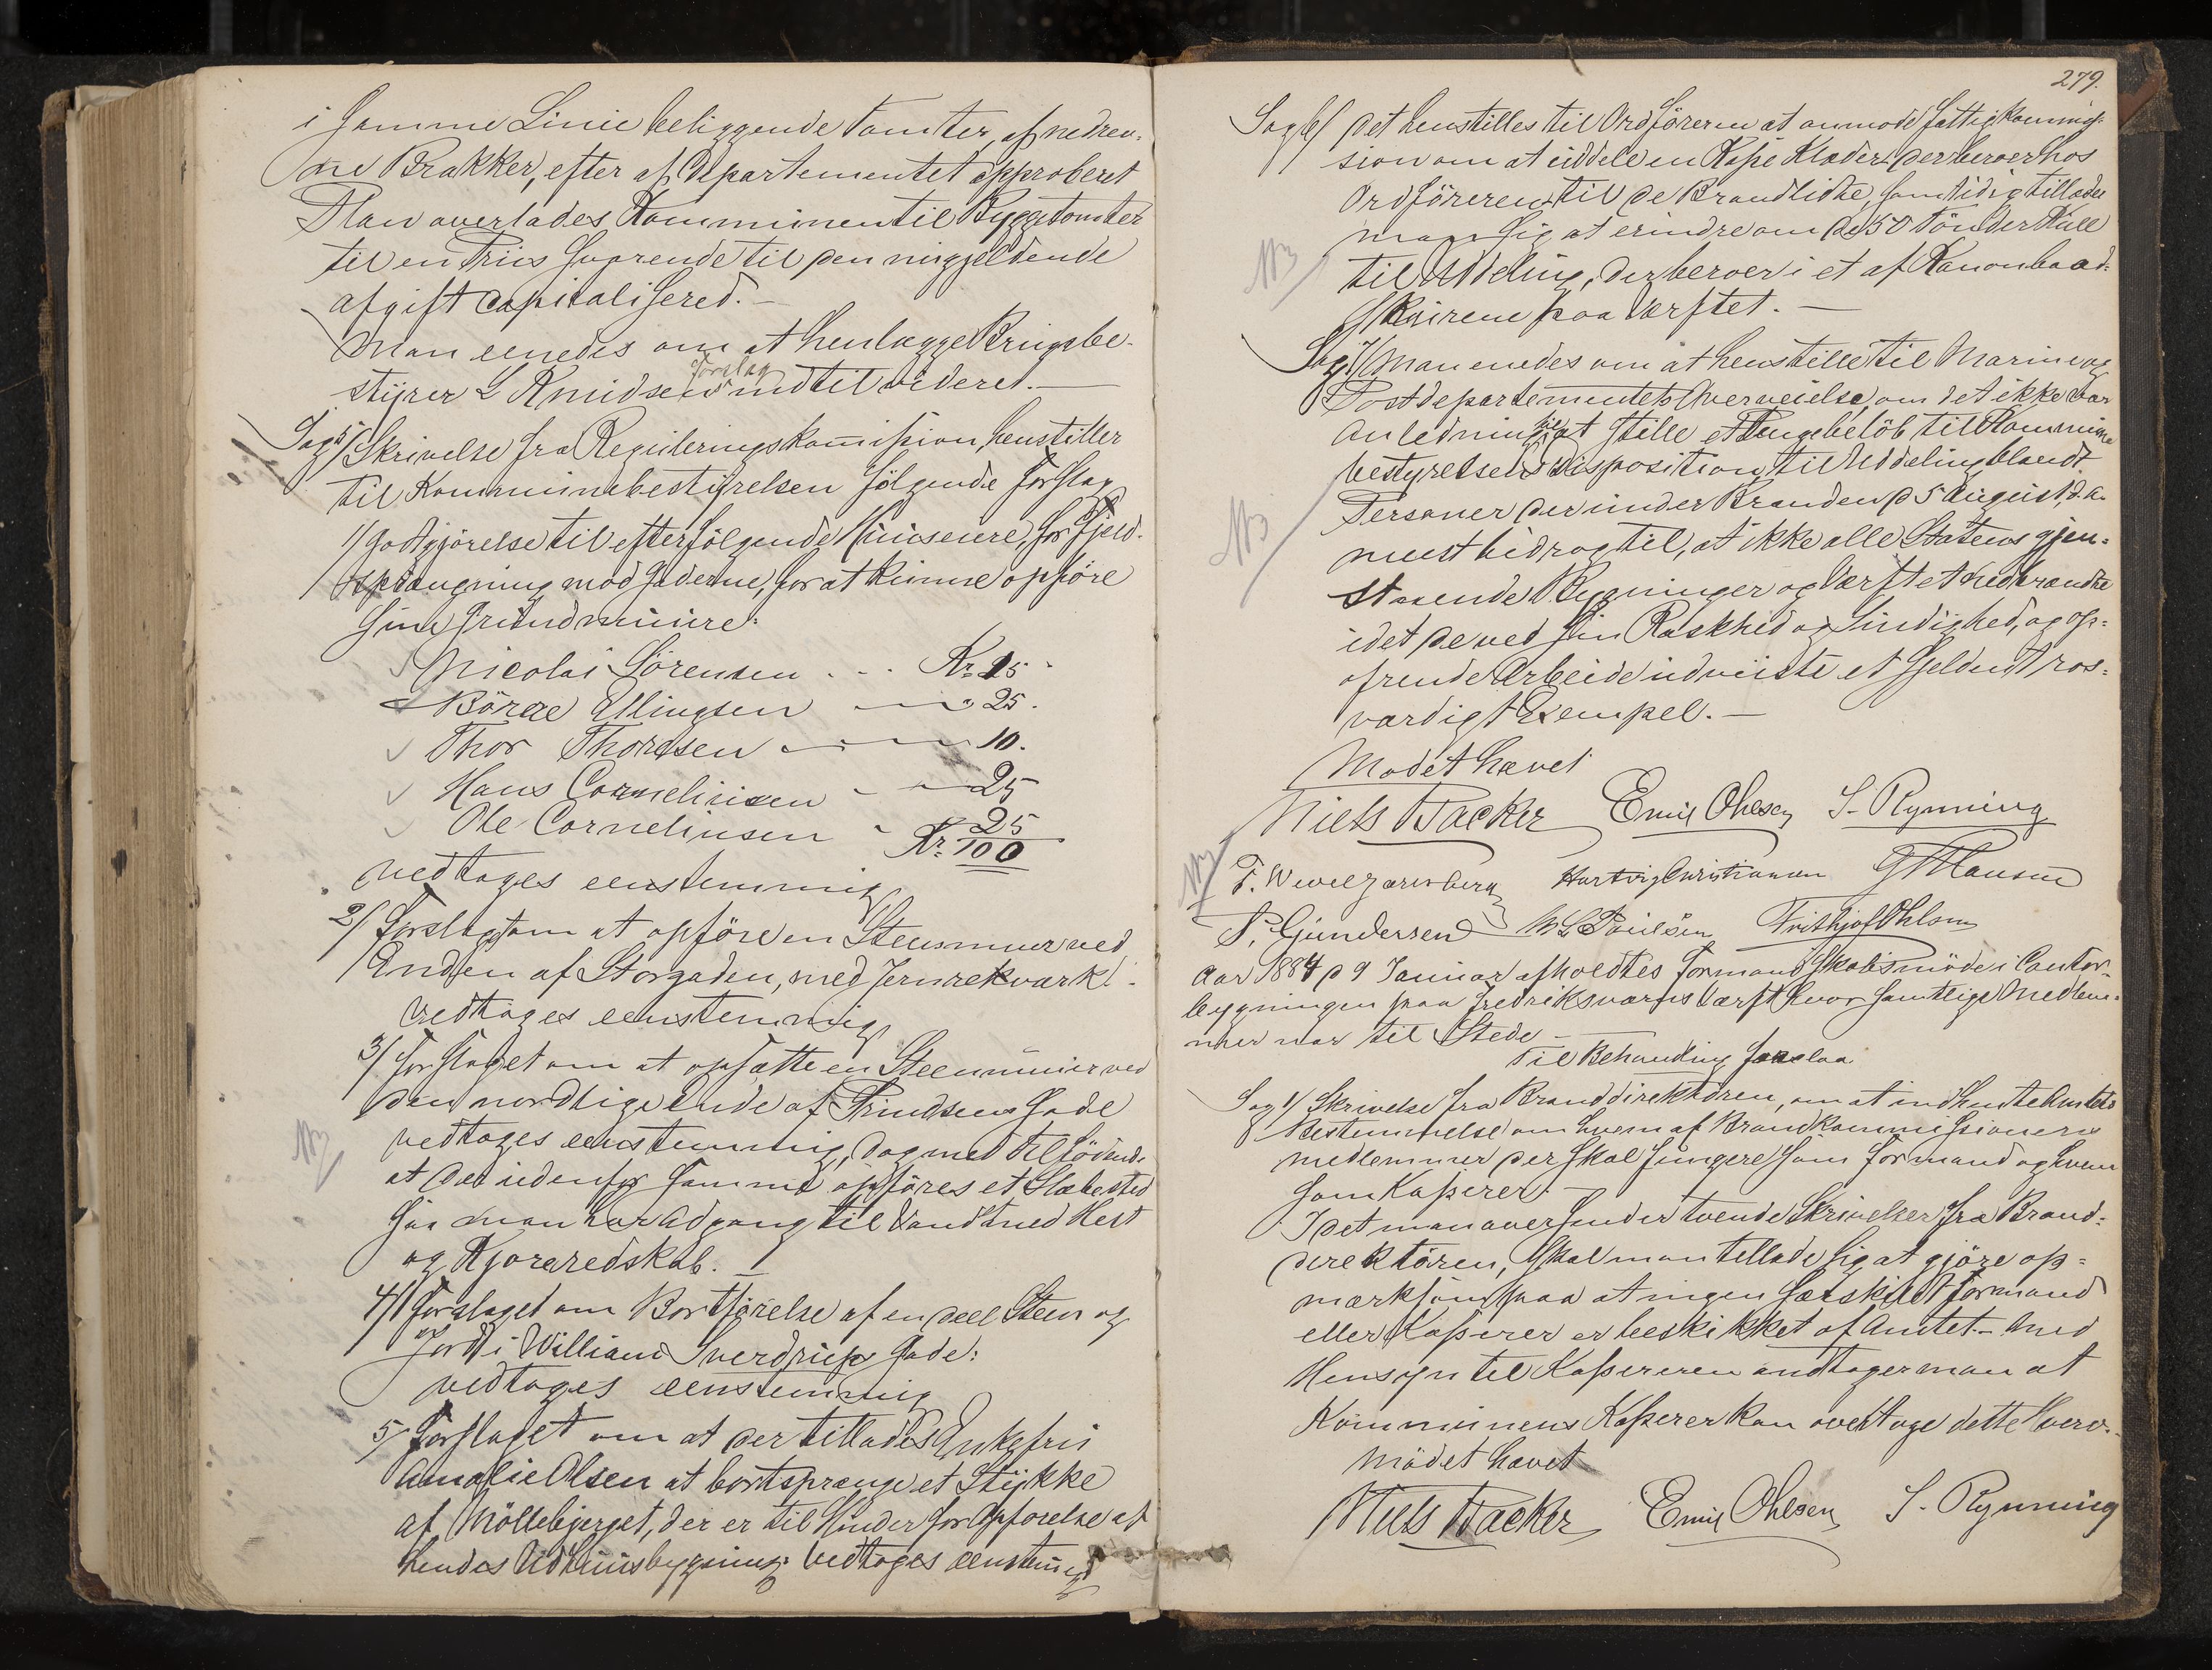 i samme Linie beliggende Tomter, af nedrev-
ne Brakker, efter af Departementet approberet
Plan overlades Kommunen til Byggetomter
til en Priis svarende til den nugjeldende
afgift capitaliseret. -
Man enedes om at henlægge Brugsbe-
Forslag
styrer L Knudsens indtil videre. -
Sag 5/ Skrivelse fra Reguleringskomission, henstiller
til Kommunebestyrelsen følgende Forslag
1/ Godtgjørelse til efterfølgende Huuseiere, for Fjeld-
sprængning mod Gaderne, for at kunne opføre
sine Grundmuure:
Nicolai Sørensen . . . Kr. 15 -
Børre Ellingsen — " 25.
Thor Thoresen — — 10.
Hans Corneliusen - — 25
Ole Corneliusen - 25
Kr. 100
vedtages eenstemmig
2/ Forslaget om at opføre en Steenmuur ved
Enden af Storgaden, med Jernrekværk! -
vedtages eenstemmig
3/ Forslaget om at opsætte en Steenmuur ved
den nordlige Ende af Prindsens Gade
vedtages eenstemmig, dog med Tilføiende
at det udenfor samme opføres et Slæbested
saa man har adgang til Vandt med Hest
og Kjøreredskab. -
4/ Forslaget om Bortførelse af en deel Steen og
Jord i Williams Sverdrups Gade:
vedtages eenstemmig
5/ Forslaget om at der tillades Enkefru
Amalie Olsen at bortsprænge et Stykke
af Möllebjerget, der er til Hinder for Opførelse af
hendes Udhuusbygning: Vedtages eenstemmig
279.
Sag 6/ Det henstilles til Ordføreren at anmode Fattigkommis-
sion om at uddele en Kasse Klæder, der beroer hos
Ordføreren til de Brandlidte, samtidig tillader
man sig at erindre om de 50 Tønder Kull
til Uddeling, der beroer i et af Kanonbaad-
skuirene paa Værftet. -
Sag 7/ Man enedes om at henstille til Marine og
Postdepartementets Overveielse, om det ikke var
Anledning til at stille et Pengebeløb til Kommune
bestyrelsens Disposition, til Uddeling blandt
Personer der under Branden d 5 August d.a.
meest bidrog til, at ikke alle Statens gjen-
staaende Bygninger og Værftet nedbrændte
idet de ved sin Raskhed og Sindighed, og op-
ofrende Arbeide udviiste et sjeldent ros-
værdigt Exempel. -
Mødet hævet
Niels Backer Emil Ohlsen S. Rynning
F. Wevelgaresberg Hartvig Christiansen G Hansen
P. Gundersen M L Poulsen Frithjof Ohlsen
Aar 1884 d 9 Januar afholdtes Formandskabsmøde i Contor-
bygningen paa Fredriksværns Værft hvor samtlige Medlem-
mer var til Stede -
Til Behandling forelaa
Sag 1/ Skrivelse fra Branddirektøren, om at indhente Amtets
Bestemmelse om hvem af Brandkommissionens
medlemmer der skal fungere som Formand og hvem
som Kasserer. -
Idet man oversender tvende Skrivelser fra Brand-
direktøren, skal man tillade sig at gjøre op-
mærksom paa at ingen særskilt Formand
eller Kasserer er beskikket af Amtet. - Med
Hensyn til Kassereren andtager man at
Kommunens Kasserer kan overtage dette Hverv. -
Mødet hævet
Niels Backer Emil Ohlsen S. Rynning